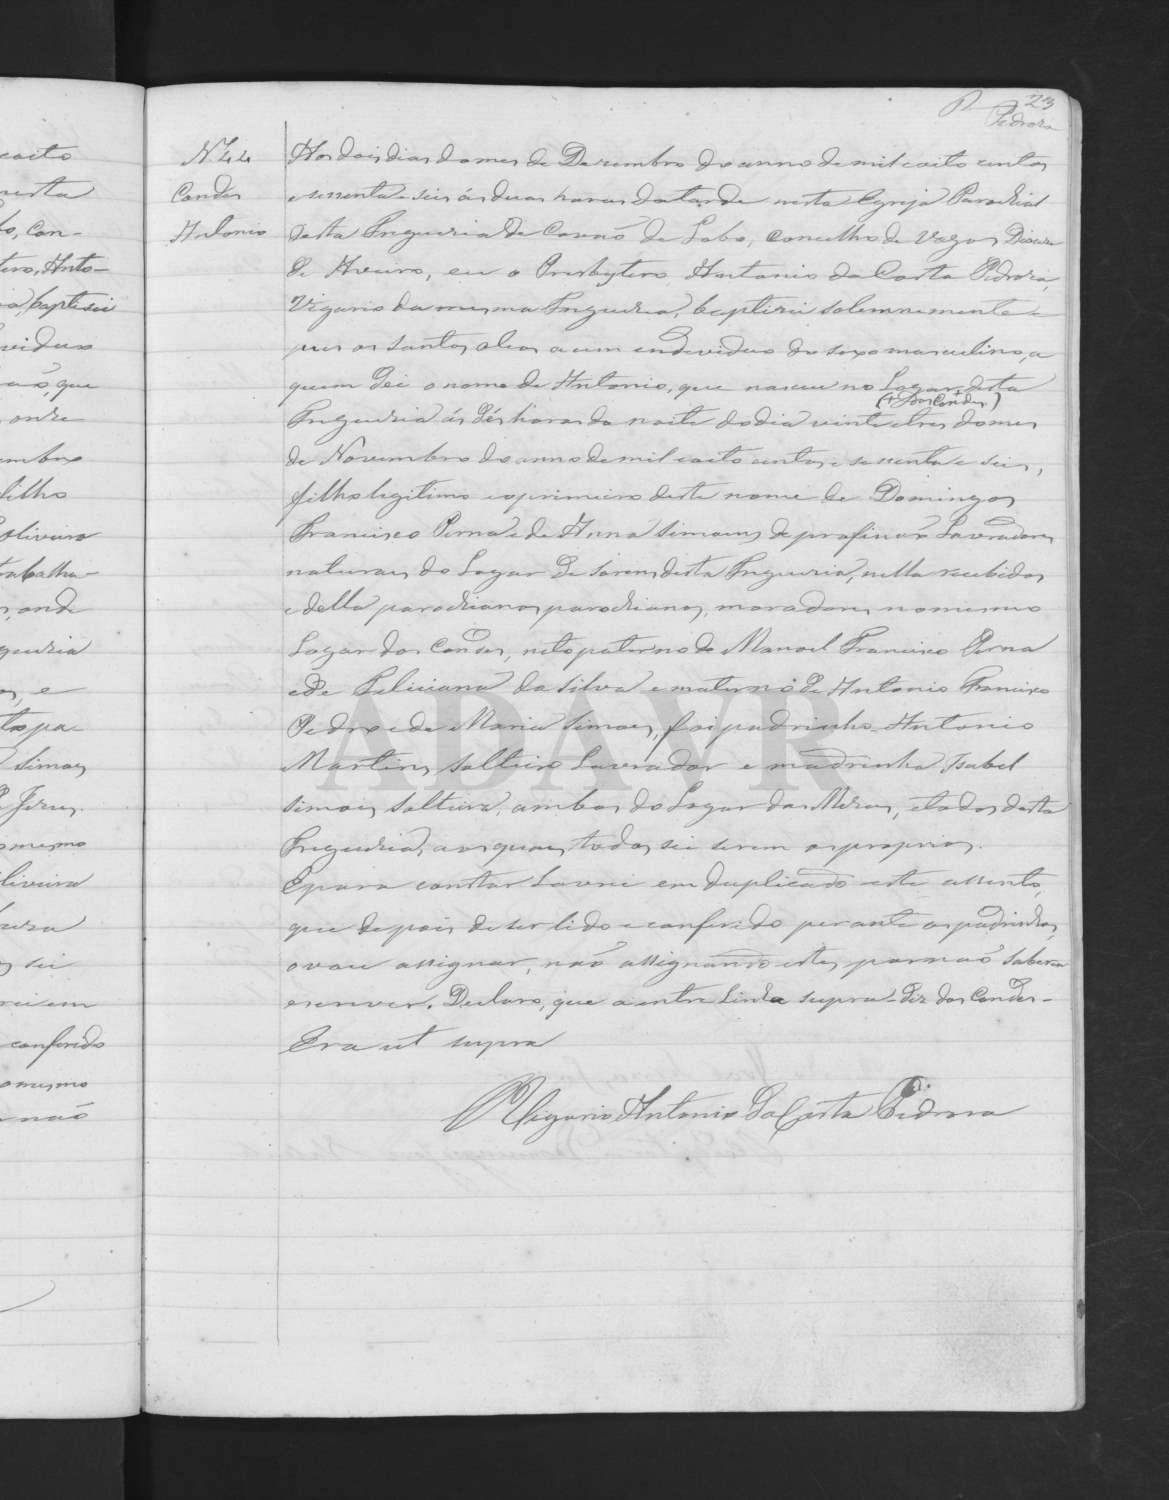 23
Pedroza
Nº 44
Condes
Antonio
Aos dois dias do mes de Dezembro do anno de mil e oito centos
e sessenta e seis ás duas horas da tarde nesta Egreja Parochial
desta Freguezia de Covaõ do Lobo, concelho de Vagos Diocese
de Aveiro, eu o Presbytero Antonio da Costa Pedroza,
Vigario da mesma Freguezia, baptizei solemnemente e
pus os santos oleos a um endeviduo do sexo masculino, a
quem dei o nome de Antonio, que nasceu no Logar desta
(+ dos Condes +)
Freguezia ás dés horas da noite do dia vinte e tres do mes
de Novembro do anno de mil e oito centos e sessenta e seis,
filho legitimo e o primeiro deste nome de Domingos
Francisco Perna e de Anna Simoens, de profissaõ Lavradores
naturaes do Logar de desta Freguezia, nella recebidos
e della parochianos parochianos, moradores no mesmo
Logar dos Condes, neto paterno de Manoel Francisco Perna
e de Feliciana da Silva e materno de Antonio Francisco
Pedro e de Maria Simoes, foi padrinho Antonio
Martins, solteiro Lavrador e madrinha Isabel
Simois, solteira, ambos do Logar das Mezas, e todos desta
Freguezia, aos quaes todos sei serem os proprios.
E para constar Lavrei em duplicado este assento,
que depois de ser lido e conferido perante os padrinhos,
o vou assignar, naõ assignando estes por naõ saberem
escrever. Declaro, que a entre linha supra - diz dos Condes -
Era ut supra
O Vigario Antonio da Costa Pedroza
ADAVR
oito
nesta
, Con-
, Anto-
baptisei
, que
onze
filho
Oliveira
trabalha-
, onde
, e
Simoes
mesmo
Oliveira
sei
conferido
o mesmo
naõ